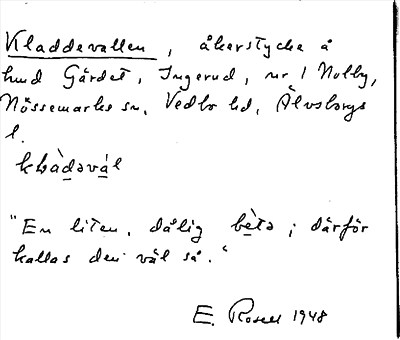 Kladdevallen, åkerstycke å
hmd Gärdet, Ingerud, nr 1 Nolby,
Nössemarks sn, Vedbo hd, Älvsborgs
l.
klàdəvál
"En liten, dålig bètə; därför
kallas den väl så."
E. Rosell 1948